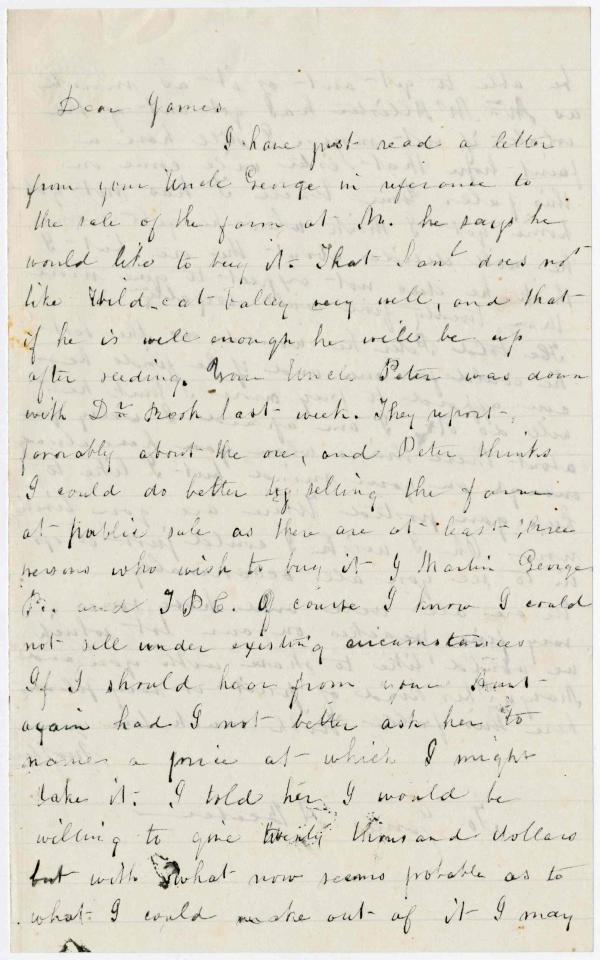 Dear James
I have just read a letter
from your Uncle George in reference to
the sale of the farm at M. he says he
would like to buy it. That Aunt does not
like Wild-cat Valley very well, and that
if he is well enough he will be up
after seeding. Your Uncle Peter was down
with Dr. last week. They report
favorably about the ore, and Peter thinks
I could do better by selling the farm
at public sale as there are at least three
persons who wish to buy it Martin George
P. and I P C. Of course I know I could
not sell under existing circumstances
If I should hear from your Aunt
again had I not better ask her to
name a price at which I might
take it. I told her I would be
willing to give twenty thousand dollars
but with what now seems probable as to
what I could make out of it I may